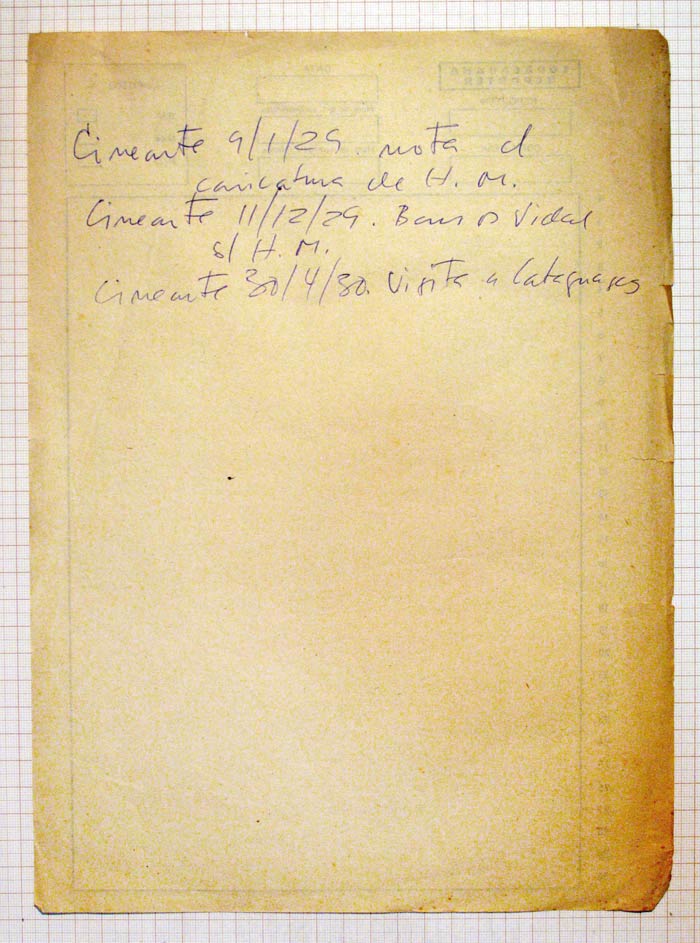 Cinearte 9/1/29. nota c/
caricatura de H. M.
Cinearte 11/12/29. Barros Vidal
s/ H. M.
Cinearte 30/4/30. Visita a Cataguases